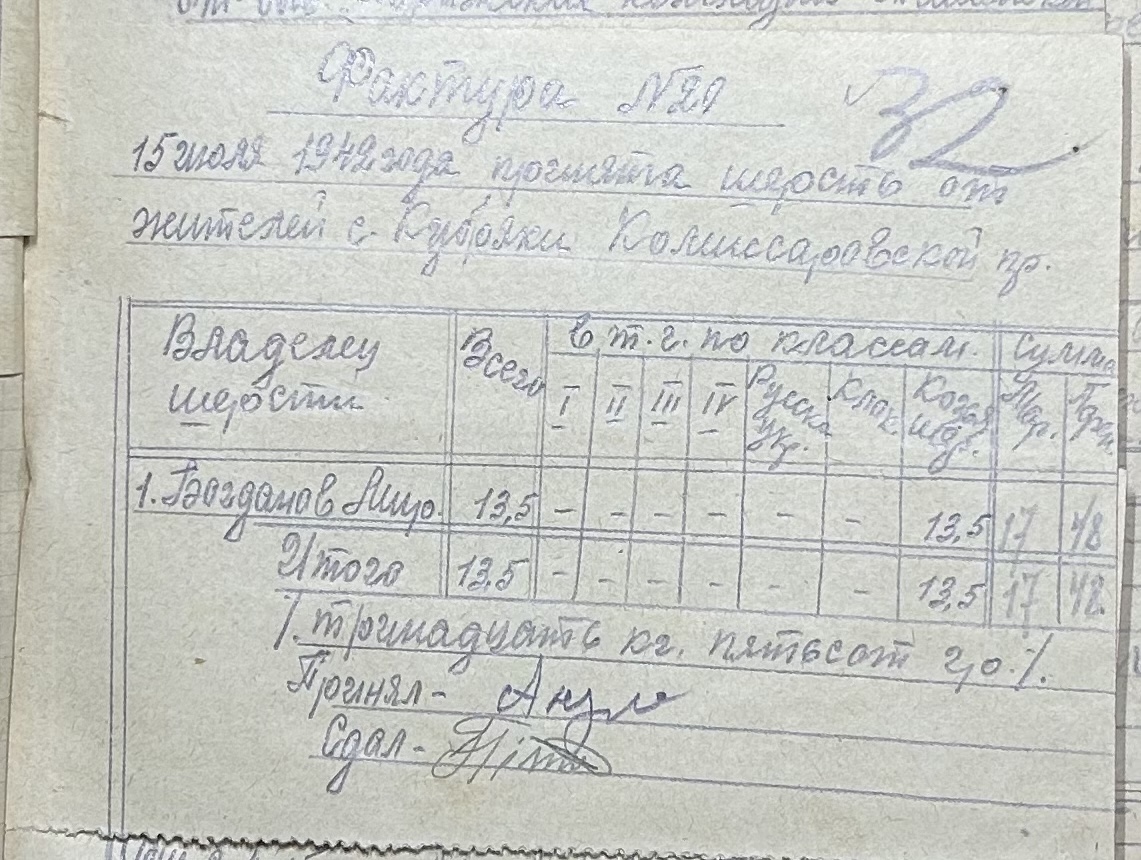 Фактура №21
32
15 июля 1942 года прогнята шерсть от
жителей с. Кубряки Комиссаровской пр.
Владелец шерсти
Всего
в т. г. по классам.
сумма
I II III IV Русска укр. Клок Козья шер. Мар. Пфен.
1. Богданов Мир. 13,5 – – – – – – 13,5 17 48
Итого 13,5 – – – – – – 13,5 17 48.
/. тринадцать кг. пятьсот гр. /.
Принял –
Сдал –